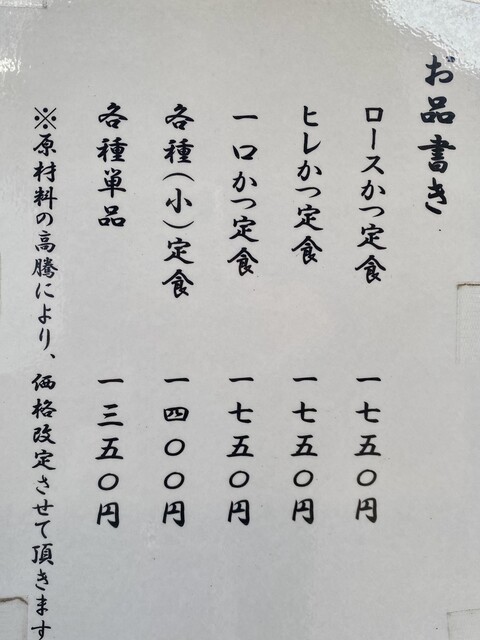 お品書き
ロースかつ定食 一七五〇円
ヒレかつ定食 一七五〇円
一口かつ定食 一七五〇円
各種(小)定食 一四〇〇円
各種単品 一三五〇円
※原材料の高騰により、価格改定させて頂きます